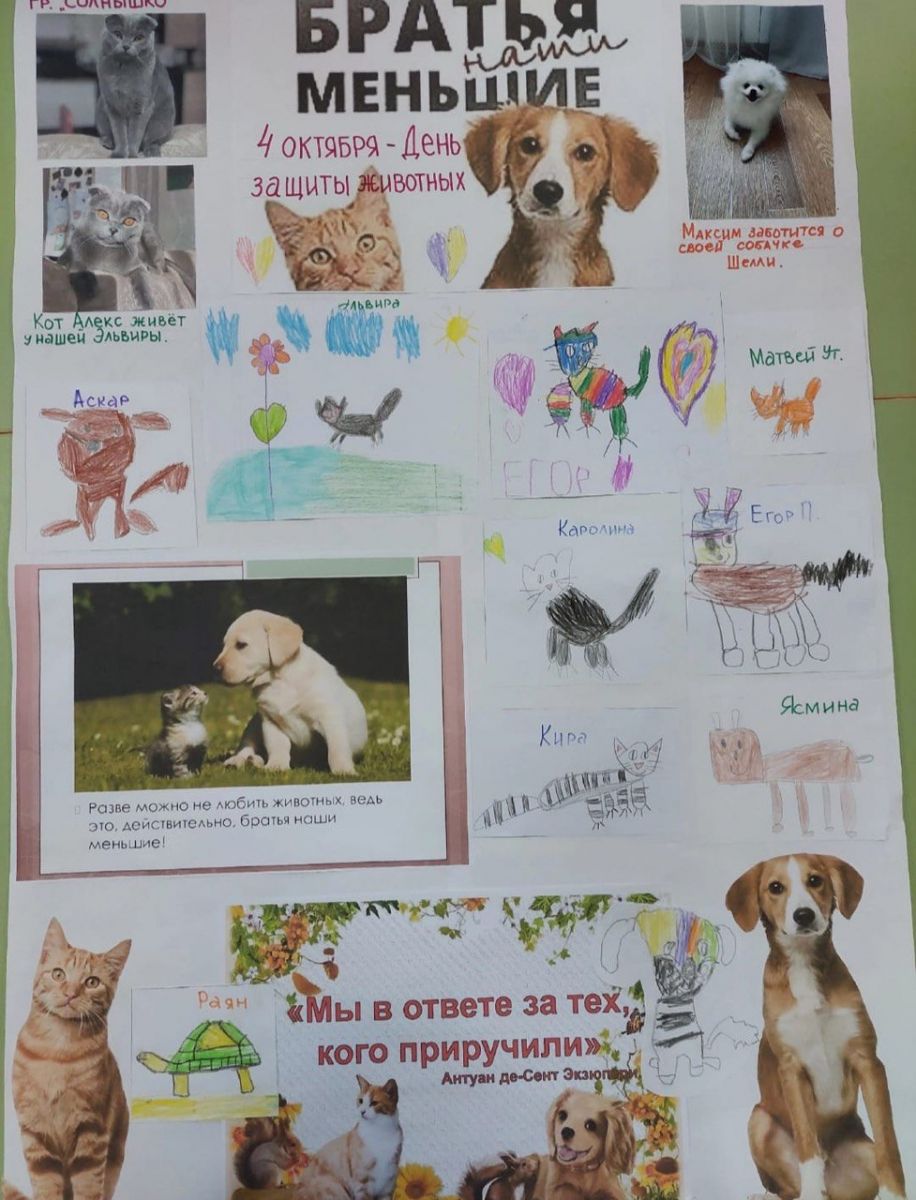 ГР. „СОЛНЫШКО
БРАТЬЯ
наши
МЕНЬШИЕ
4 октября - День
защиты животных
Максим заботится о
своей собачке
Шелли.
Кот Алекс живёт
у нашей Эльвиры.
Эльвира
Матвей Ут.
Аскар
ЕГОР
Каролина
Егор П.
Кира
Ясмина
Разве можно не любить животных, ведь
это, действительно, братья наши
меньшие!
Раян
«Мы в ответе за тех,
кого приручили»
Антуан де-Сент Экзюпери